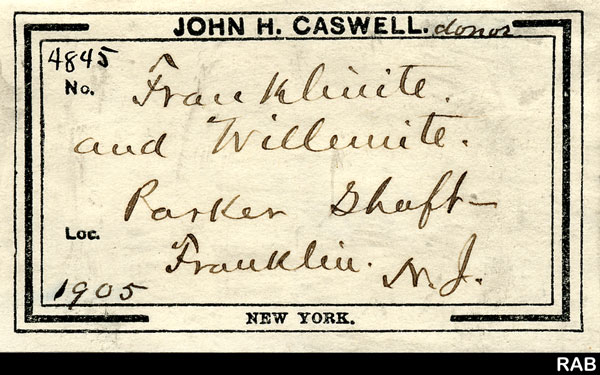 JOHN H. CASWELL. donor
4845
No.
Franklinite.
and Willemite.
Parker Shaft-
Loc.
Franklin. N.J.
1905
NEW YORK.
RAB